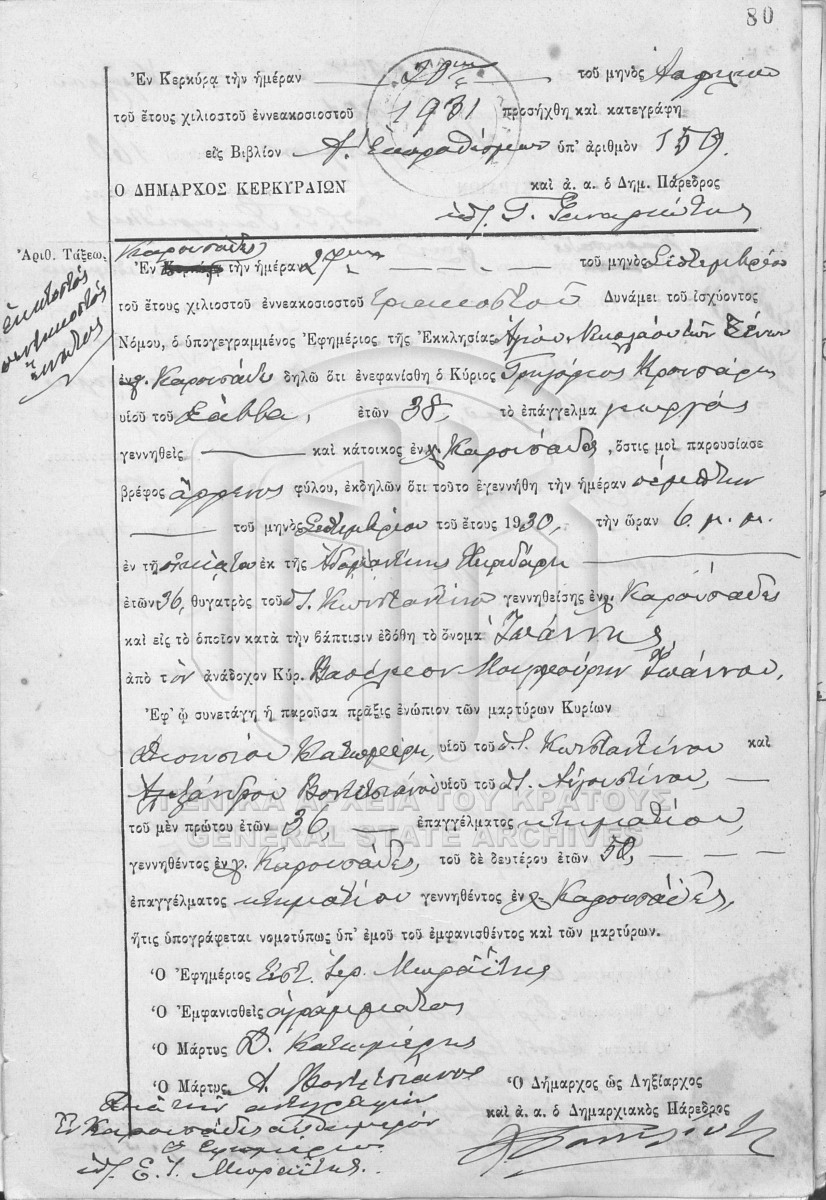 80
Ἐν Κερκύρᾳ τὴν ἡμέραν 20ην τοῦ μηνὸς Ἀπριλίου
τοῦ ἔτους χιλιοστοῦ ἐννεακοσιοστοῦ 1931 προσήχθη καὶ κατεγράφη
εἰς Βιβλίον Α. ὑπ' ἀριθμὸν 159.
Ο ΔΗΜΑΡΧΟΣ ΚΕΡΚΥΡΑΙΩΝ καὶ ἀ. α. ὁ Δημ. Πάρεδρος
ὑπ. Γ.
Ἀριθ. Τάξεω.
ἑκατοστὸς
πεντηκοστὸς
ἔνατος
Καρουσάδες
Ἐν Κερκύρᾳ τὴν ἡμέραν τοῦ μηνὸς Σεπτεμβρίου
τοῦ ἔτους χιλιοστοῦ ἐννεακοσιοστοῦ τριακοστοῦ Δυνάμει τοῦ ἰσχύοντος
Νόμου, ὁ ὑπογεγραμμένος Ἐφημέριος τῆς Ἐκκλησίας Ἁγίου Νικολάου τῶν Ξένων
ἐν χ. Καρουσάδες δηλῶ ὅτι ἐνεφανίσθη ὁ Κύριος Γρηγόριος
υἱοῦ τοῦ Σάββα, ἐτῶν 38, τὸ ἐπάγγελμα γεωργὸς
γεννηθεὶς καὶ κάτοικος ἐν χ. Καρουσάδες, ὅστις μοὶ παρουσίασε
βρέφος ἄρρενος φύλου, ἐκδηλῶν ὅτι τοῦτο ἐγεννήθη τὴν ἡμέραν πέμπτην
τοῦ μηνὸς Σεπτεμβρίου τοῦ ἔτους 1930, τὴν ὥραν 6 μ. μ.
ἐν τῇ οἰκίᾳ του ἐκ τῆς Ἀδαμαντίνης
ἐτῶν 36, θυγατρὸς τοῦ Κωνσταντίνου γεννηθείσης ἐν χ. Καρουσάδες
καὶ εἰς τὸ ὁποῖον κατὰ τὴν βάπτισιν ἐδόθη τὸ ὄνομα Ἰωάννης,
ἀπὸ τὸν ἀνάδοχον Κύρ. Βασίλειον Ἰωάννου,
Ἐφ' ᾧ συνετάγη ἡ παροῦσα πρᾶξις ἐνώπιον τῶν μαρτύρων Κυρίων
Διονυσίου Κατωμέρη, υἱοῦ τοῦ Κωνσταντίνου καὶ
Ἀλεξάνδρου υἱοῦ τοῦ Αὐγουστίνου,
ΓΕΝΙΚΑ ΑΡΧΕΙΑ ΤΟΥ ΚΡΑΤΟΥΣ
τοῦ μὲν πρώτου ἐτῶν 36, ἐπαγγέλματος κτηματίου,
GENERAL STATE ARCHIVES
γεννηθέντος ἐν χ. Καρουσάδες, τοῦ δὲ δευτέρου ἐτῶν 50,
ἐπαγγέλματος κτηματίου γεννηθέντος ἐν χ. Καρουσάδες,
ἥτις ὑπογράφεται νομοτύπως ὑπ' ἐμοῦ τοῦ ἐμφανισθέντος καὶ τῶν μαρτύρων.
Ὁ Ἐφημέριος Εὐστ. Ἱερ. Μωραΐτης
Ὁ Ἐμφανισθεὶς ἀγράμματος
Ὁ Μάρτυς Δ. Κατωμέρης
Ὁ Μάρτυς Α.
Διὰ τὴν ἀντιγραφὴν
Ἐν Καρουσάδες αὐθημερὸν
Ὁ Ἐφημέριος
ὑπ. Ε. Ι. Μωραΐτης.
Ὁ Δήμαρχος ὡς Ληξίαρχος
καὶ ἀ. α. ὁ Δημαρχιακὸς Πάρεδρος